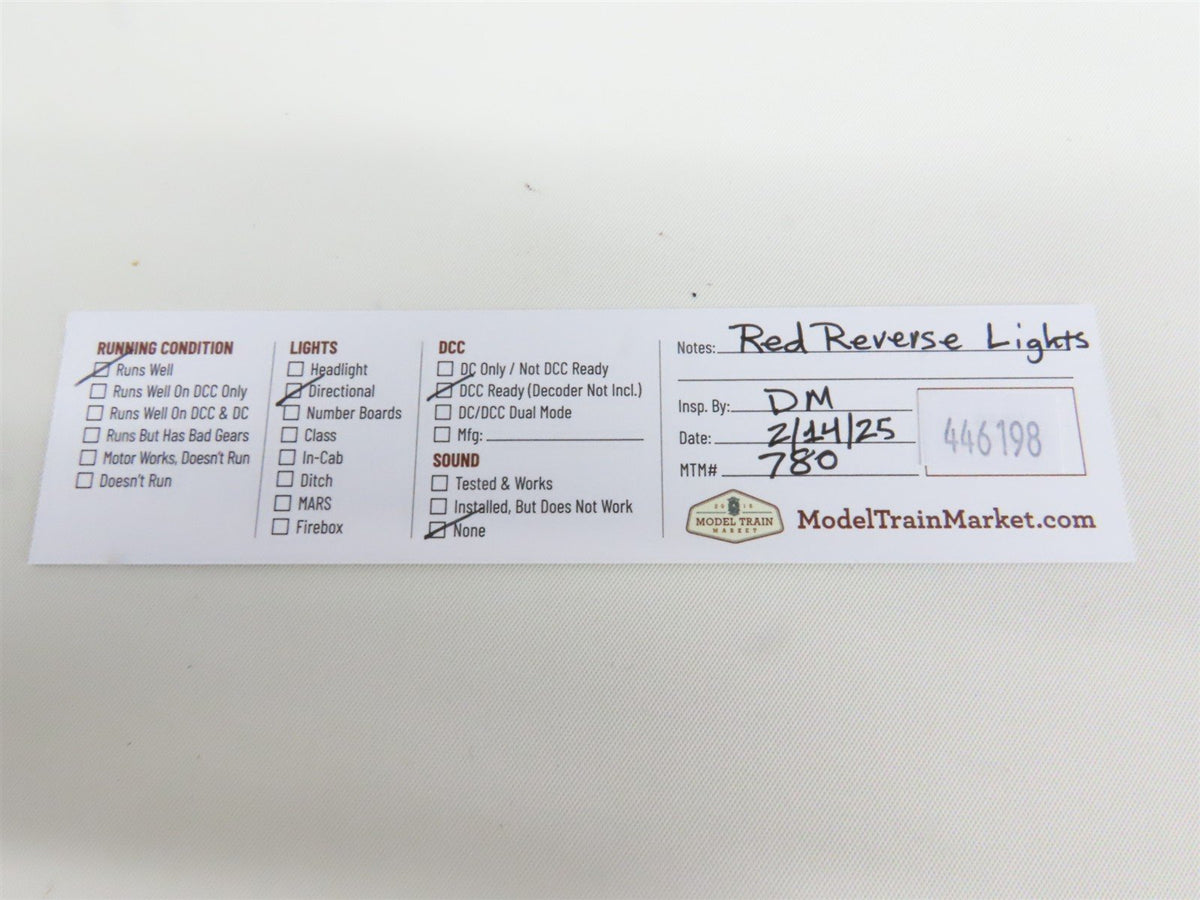 RUNNING CONDITION
Runs Well
Runs Well On DCC Only
Runs Well On DCC & DC
Runs But Has Bad Gears
Motor Works, Doesn't Run
Doesn't Run
LIGHTS
Headlight
Directional
Number Boards
Class
In-Cab
Ditch
MARS
Firebox
DCC
DC Only / Not DCC Ready
DCC Ready (Decoder Not Incl.)
DC/DCC Dual Mode
Mfg:
SOUND
Tested & Works
Installed, But Does Not Work
None
Notes: Red Reverse Lights
Insp. By: DM
Date: 2/14/25
MTM# 780
446198
MODEL TRAIN
MARKET
ModelTrainMarket.com